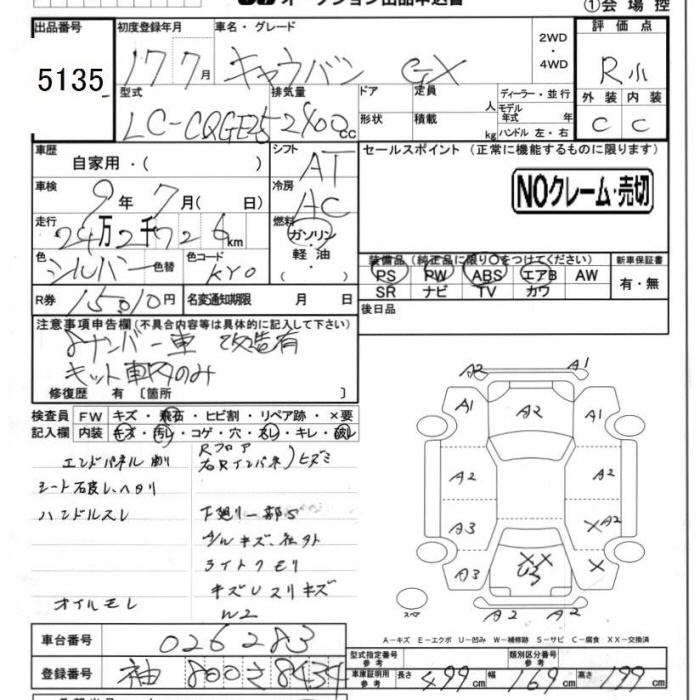 オークション出品申込書
①会場控
出品番号 初度登録年月 車名・グレード 2WD・4WD 評価点
5135 17 7月 キャラバン GX R小
型式 排気量 ドア 定員 人 ディーラー・並行 外装 内装
LC-CQGE25 2400cc 形状 積載 kg モデル年式 年 ハンドル 左・右 C C
車歴 自家用・( ) シフト AT セールスポイント(正常に機能するものに限ります)
車検 9年 7月( 日) 冷房 AC NOクレーム・売切
走行 24万2千726km 燃料 ガソリン・軽油・( )
色 シルバー 色替 色コード KY0 装備品(純正品に限り○をつけてください) 新車保証書
PS PW ABS エアB AW 有・無
SR ナビ TV カワ
R券 15010円 名変通知期限 月 日 後日品
注意事項申告欄(不具合内容等は具体的に記入して下さい)
8ナンバー車 改造有
キット車内のみ
修復歴 有 〔箇所 〕
検査員 FW キズ・飛石・ヒビ割・リペア跡・×要
記入欄 内装 キズ・汚レ・コゲ・穴・スレ・キレ・破レ
Rフロア
エンドパネル 右Rインパネ)ヒズミ
シート ヘタリ
ハンドルスレ 下廻り一部S
キズ
ライトクモリ
キズUスリキズ
オイルモレ W2
A2 A1
A1 A2 A1
A2 A2
A3 X A2
A3 XX U3 X
スペア A2 A2
A-キズ E-エクボ U-凹み W-補修跡 S-サビ C-腐食 XX-交換済
車台番号 026283 型式指定番号 参考 類別区分番号 参考
登録番号 袖 800さ8434 車庫証明用 参考 長さ 499cm 幅 169cm 高さ 199cm